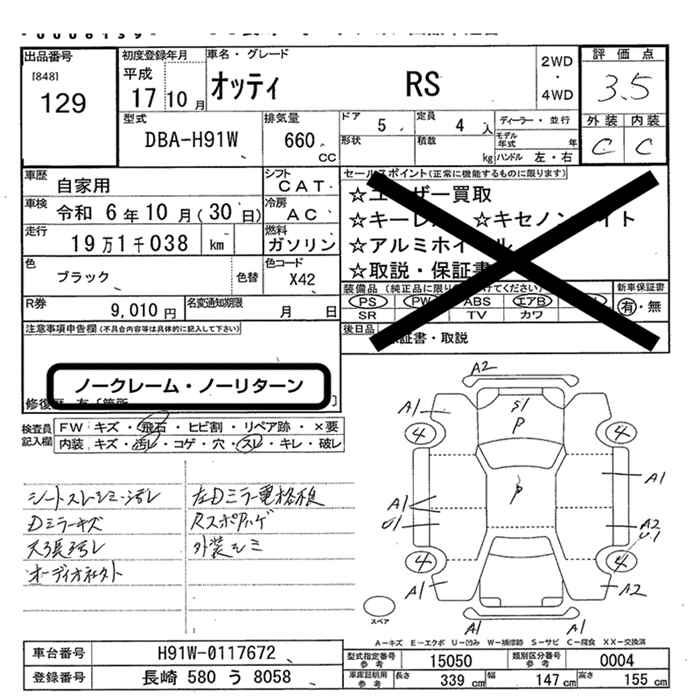 出品番号
[848]
129
初度登録年月
平成
17 10 月
車名・グレード
オッティ RS
2WD
・
4WD
評価点
3.5
外装 内装
C C
型式
DBA-H91W
排気量
660
CC
ドア 5
定員 4 人
形状
積数 kg
ディーラー・並行
モデル年式 年
ハンドル 左・右
車歴
自家用
シフト
CAT
車検
令和 6 年 10 月 (30 日)
冷房
AC
走行
19 万 1 千 038 km
燃料
ガソリン
色
ブラック
色替
色コード
X42
R券
9,010 円
名変通知期限
月 日
セールスポイント(正常に機能するものに限ります)
☆ユーザー買取
☆キーレス ☆キセノンライト
☆アルミホイール
☆取説・保証書
装備品
新車保証書
PS PW ABS エアB
SR TV カワ
有・無
後日品
保証書・取説
注意事項申告欄(不具合内容等は具体的に記入して下さい)
ノークレーム・ノーリターン
検査員
記入欄
FW キズ・飛石・ヒビ割・リペア跡・×要
内装・キズ・汚レ・コゲ・穴・スレ・キレ・破レ
シートスレ・シミ・汚レ
Dミラーキズ
天張汚レ
オーディオ
左Dミラー電格
外装シミ
A2
A1
4
S1
P
4
P
A1
A1
U1
A2
U1
4
4
A1
A2
A1
A1
スペア
A−キズ E−エクボ U−凹み W−補修跡 S−サビ C−腐食 XX−交換済
車台番号
H91W-0117672
登録番号
長崎 580 う 8058
型式指定番号
参考
15050
類別区分番号
参考
0004
車庫証明用
参考
長さ 339 cm
幅 147 cm
高さ 155 cm